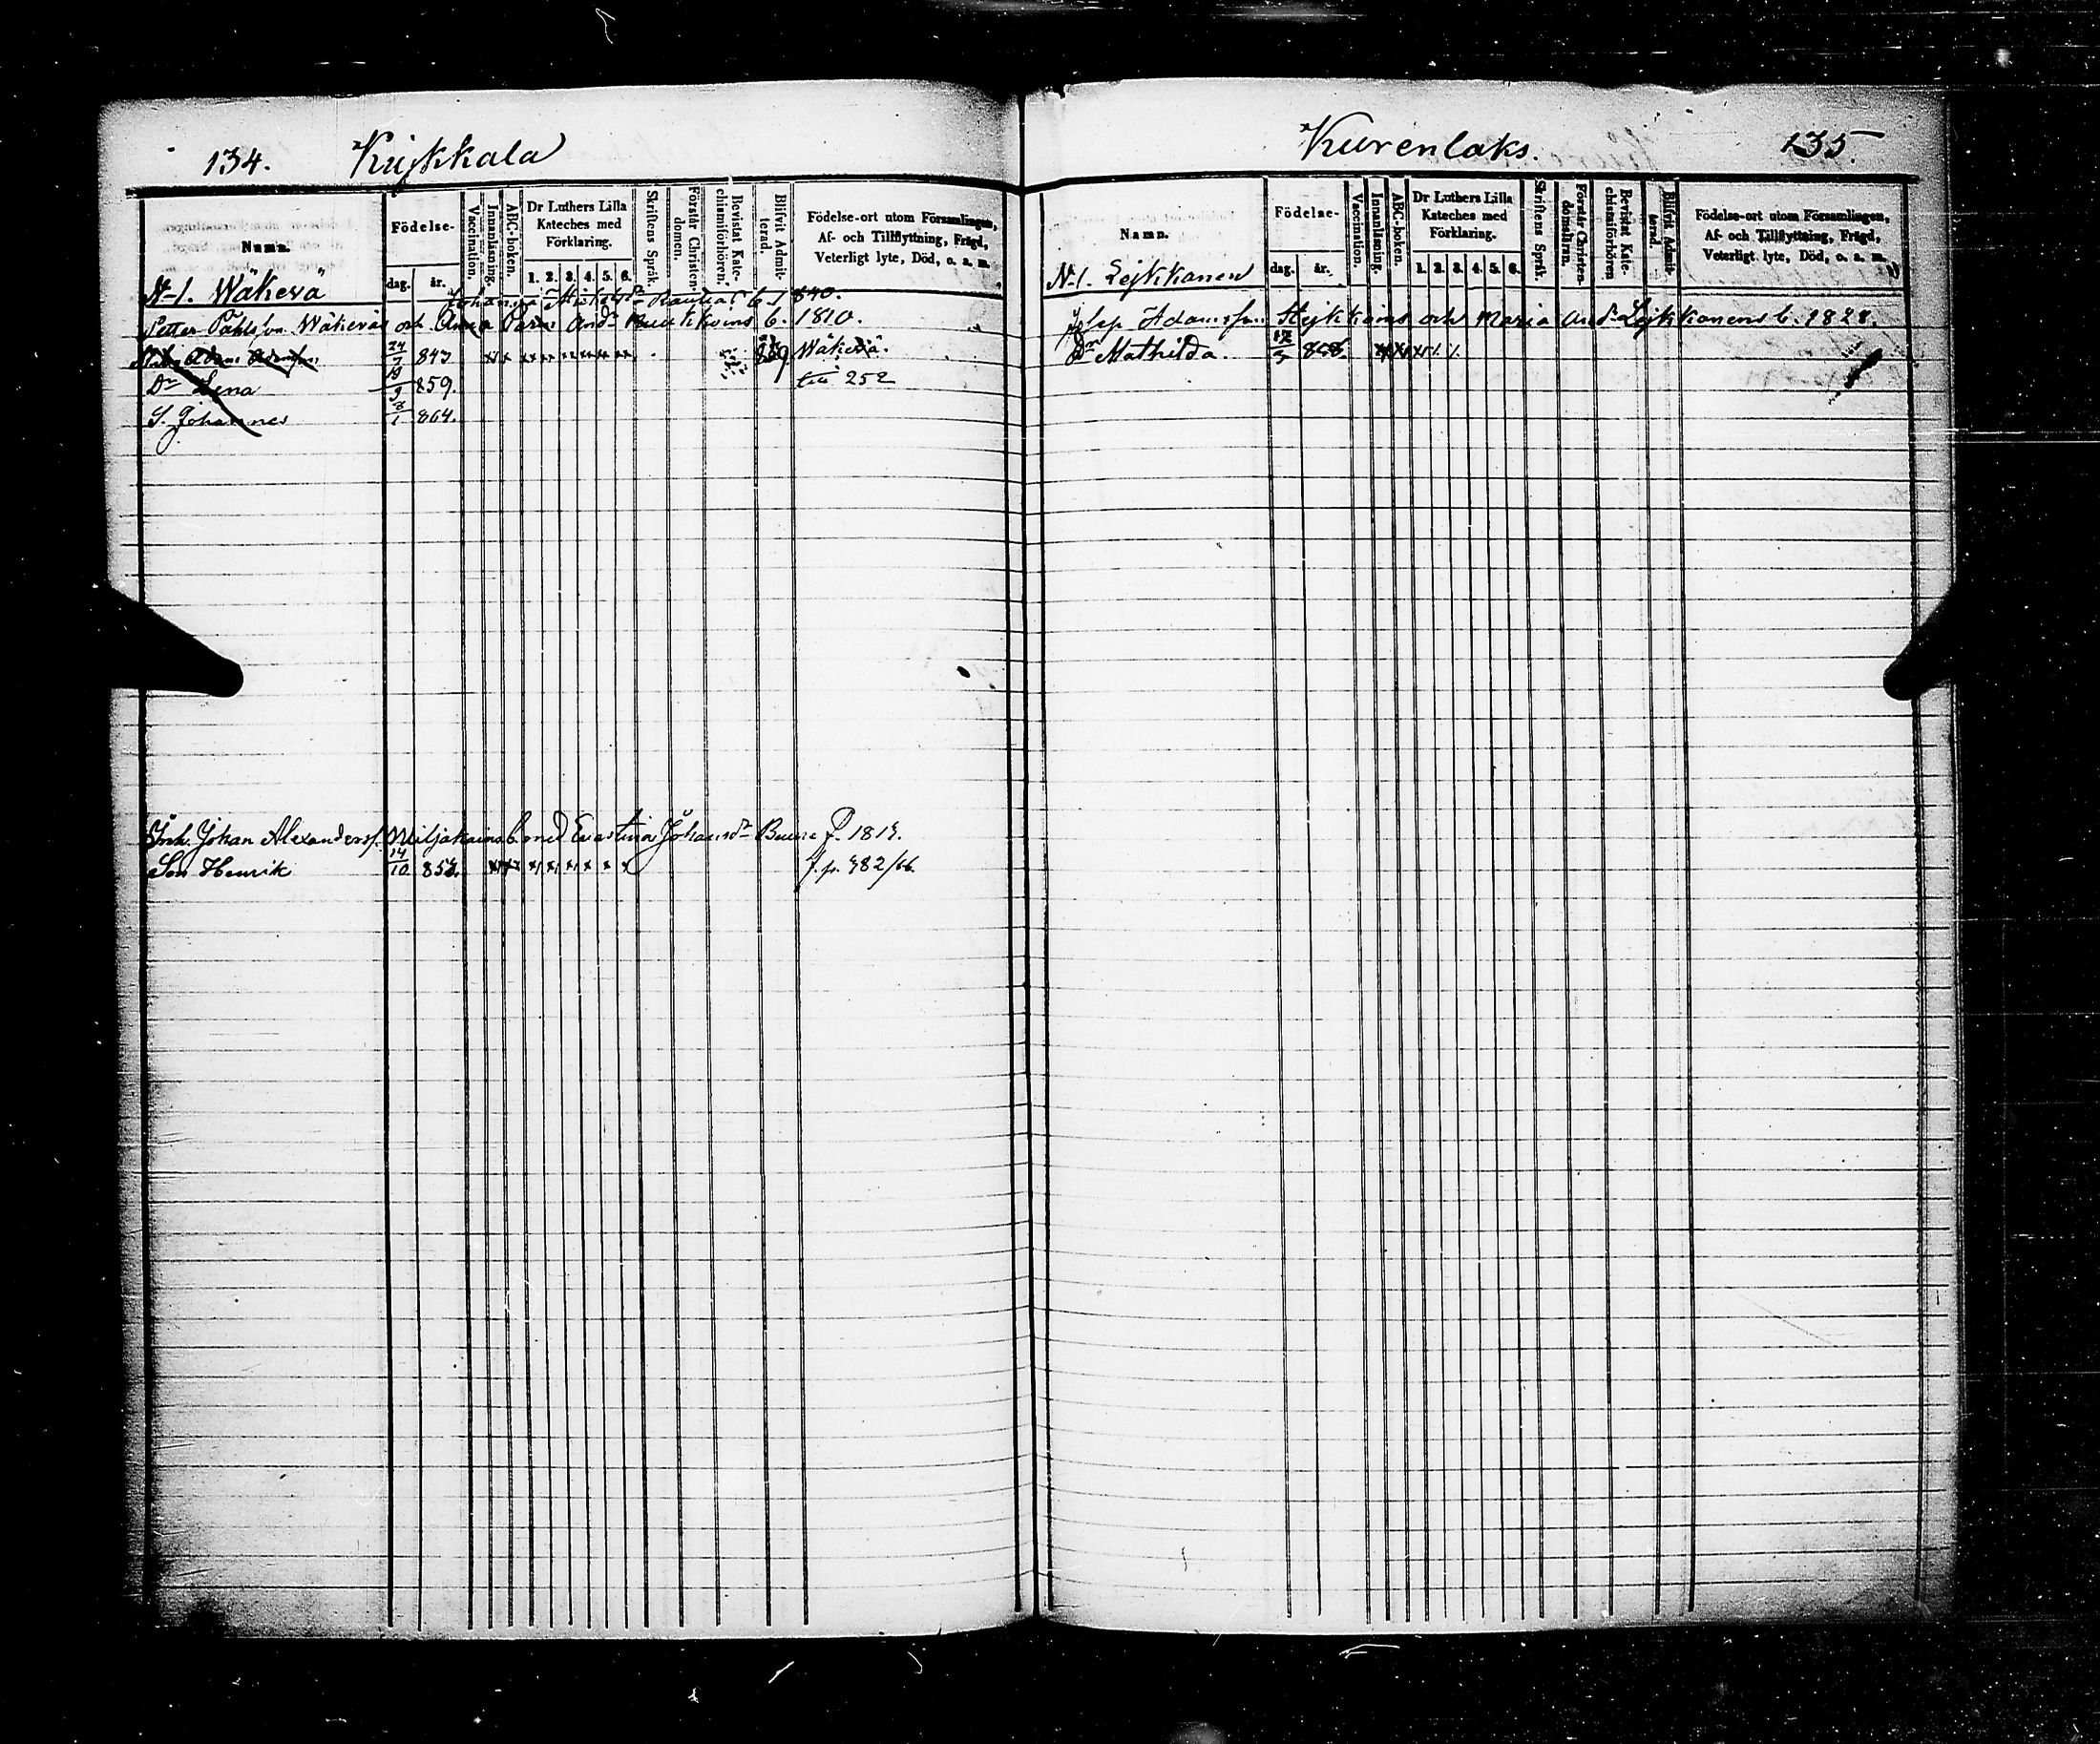 134. Kujkkala
Namn.
Födelse-
dag. år.
Vaccination.
Innanläsning.
ABC-boken.
Dr Luthers Lilla Kateches med Förklaring.
1. 2. 3. 4. 5. 6.
Skriftens Språk.
Förstår Christen-domen.
Bevistat Kate-chismiförhören.
Blifvit Admit-terad.
Födelse-ort utom Församlingen, Af- och Tillflyttning, Frägd, Veterligt lyte, Död, o. a. m.
N-1. Wäkevä
Johan b. 1840.
Petter Påhlsson Wäkeväs och Anna And. b. 1810.
24/7 843 Wäkevä.
Dr Lena 859. till 252
S. Johannes 1 864.
Johan Alexanders. b. med Johansdr P. 1813.
Son Henrik 14/10 853. f. p. 382/66.
Kurenlaks. 135.
Namn.
Födelse-
dag. år.
Vaccination.
Innanläsning.
ABC-boken.
Dr Luthers Lilla Kateches med Förklaring.
1. 2. 3. 4. 5. 6.
Skriftens Språk.
Förstår Christen-domsläran.
Bevistat Kate-chismiförhören.
Blifvit Admit-terad.
Födelse-ort utom Församlingen, Af- och Tillflyttning, Frägd, Veterligt lyte, Död, o. a. m.
N-1. Lejkkanen
Adamsson och Maria And. Lejkkanens b. 1828.
Dr Mathilda.